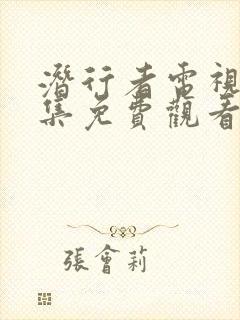 潛行者電視
集免費觀看
張會莉